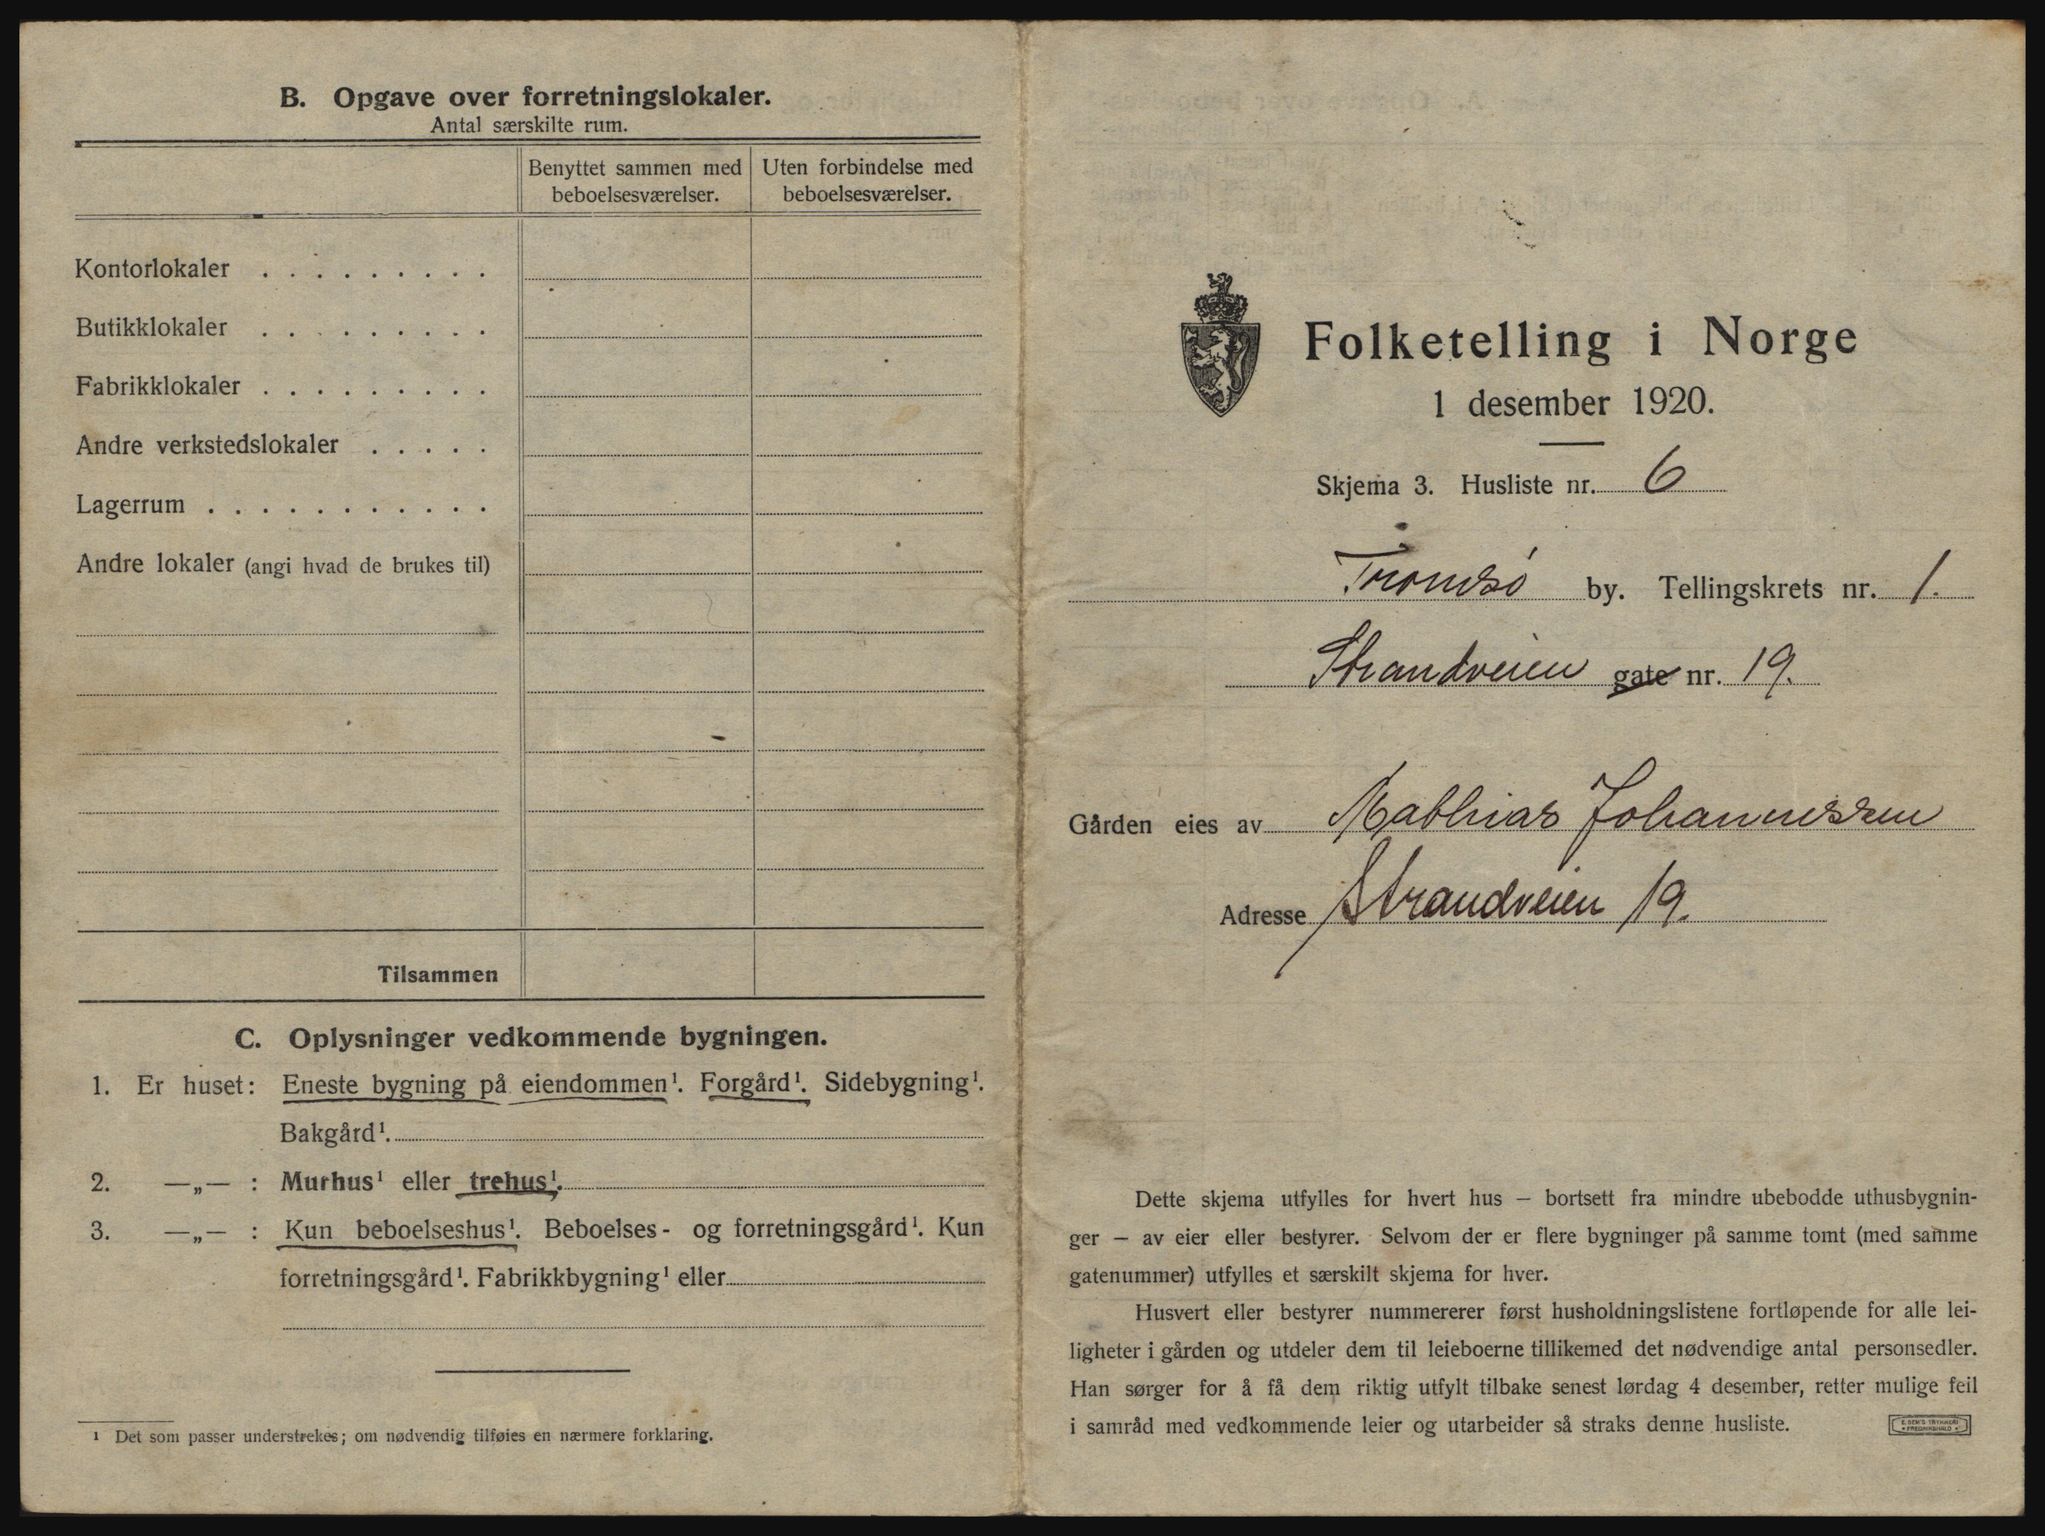 B. Opgave over forretningslokaler.
Antal særskilte rum.
Benyttet sammen med beboelsesværelser.
Uten forbindelse med beboelsesværelser.
Kontorlokaler . . . . . . . . .
Butikklokaler . . . . . . . . .
Fabrikklokaler . . . . . . . . .
Andre verkstedslokaler . . . . .
Lagerrum . . . . . . . . . . .
Andre lokaler (angi hvad de brukes til)
Tilsammen
C. Oplysninger vedkommende bygningen.
1. Er huset: Eneste bygning på eiendommen¹. Forgård¹. Sidebygning¹.
Bakgård¹.
2. —„— : Murhus¹ eller trehus¹.
3. —„— : Kun beboelseshus¹. Beboelses- og forretningsgård¹. Kun
forretningsgård¹. Fabrikkbygning¹ eller
¹ Det som passer understrekes; om nødvendig tilføies en nærmere forklaring.
Folketelling i Norge
1 desember 1920.
Skjema 3. Husliste nr. 6
Tromsø by. Tellingskrets nr. 1.
Strandveien gate nr. 19.
Gården eies av Mathias Johannessen
Adresse Strandveien 19.
Dette skjema utfylles for hvert hus – bortsett fra mindre ubebodde uthusbygnin-
ger – av eier eller bestyrer. Selvom der er flere bygninger på samme tomt (med samme
gatenummer) utfylles et særskilt skjema for hver.
Husvert eller bestyrer nummererer først husholdningslistene fortløpende for alle lei-
ligheter i gården og utdeler dem til leieboerne tillikemed det nødvendige antal personsedler.
Han sørger for å få dem riktig utfylt tilbake senest lørdag 4 desember, retter mulige feil
i samråd med vedkommende leier og utarbeider så straks denne husliste.
E. SEM'S TRYKKERI
FREDRIKSHALD